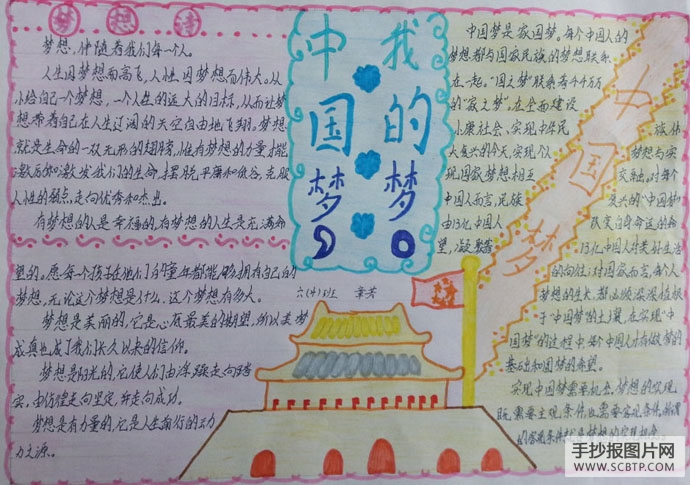 梦想诗
梦想，伴随着我们每一个人。
人生因梦想而高飞，人性因梦想而伟大。从
小给自己一个梦想，一个人生的远大的目标，从而让梦
想带着自己在人生辽阔的天空自由地飞翔。梦想
就是生命的一双无形的翅膀，唯有梦想的力量才能
激发我们的生命，摆脱平庸和低谷，克服
人性的弱点，走向优秀和杰出。
有梦想的人是幸福的，有梦想的人生是充满希
望的。愿每个孩子在他们的童年都能够拥有自己的
梦想，无论这个梦想是什么，这个梦想有多大。
梦想是美丽的，它是心底最美的期望，所以美梦
成真也成了我们长久以来的信仰。
梦想是阳光的，它使人们由浮躁走向踏
实，由彷徨走向坚定，并走向成功。
梦想是有力量的，它是人生前行的动力
力之源。
我的梦
中国梦
六(4)班 章芳
中国梦
中国梦是家国梦。每个中国人的
梦想都与国家民族的梦想联系
在一起。"国之梦"联系着千千万万
的"家之梦"。在全面建设
小康社会、实现中华民族伟
大复兴的今天，实现个梦想与实
现国家梦想相互交织。对每个
中国人而言，民族复兴的"中国梦
由13亿中国人改变自身命运的希
望，凝聚着13亿中国人对美好生活
的向往；对国家而言，每个人
梦想的生长，都必须深深植根
于"中国梦"的土壤。在实现"中
国梦"的过程中，每个中国人都有做梦的
基础和圆梦的希望。
实现中国梦需要机会。梦想的实现，
既需要主观条件，也需要客观条件。
手抄报图片网
WWW.SCBTP.COM